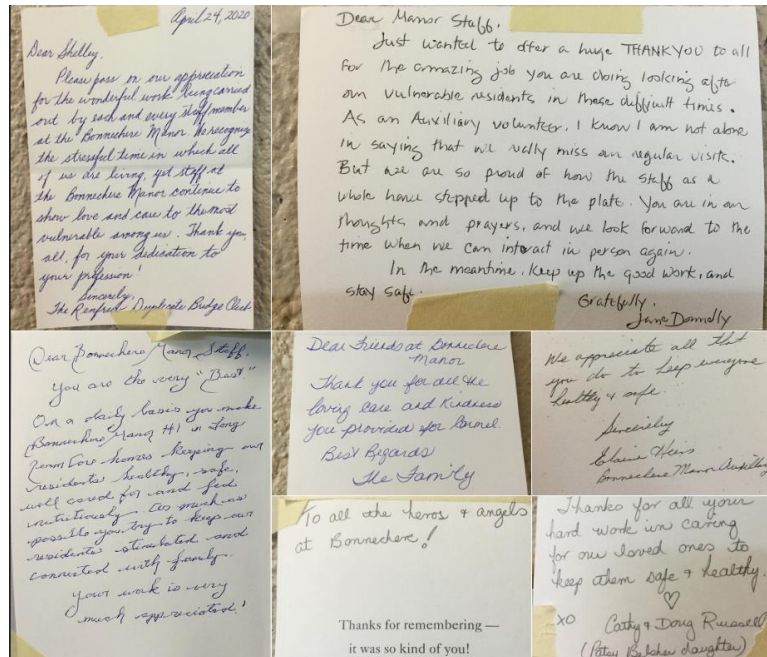 April 24, 2020
Dear Shelley,
Please pass on our appreciation
for the wonderful work being carried
out by each and every staff member
at the Bonnechere Manor. We recognize
the stressful time in which all
of us are living, yet staff at
the Bonnechere Manor continue to
show love and care to the most
vulnerable among us. Thank you,
all, for your dedication to
your profession!
Sincerely,
The Renfrew Duplicate Bridge Club
Dear Manor Staff,
Just wanted to offer a huge THANKYOU to all
for the amazing job you are doing looking after
our vulnerable residents in these difficult times.
As an Auxiliary volunteer, I know I am not alone
in saying that we really miss our regular visits.
But we are so proud of how the staff as a
whole have stepped up to the plate. You are in our
thoughts and prayers, and we look forward to the
time when we can interact in person again.
In the meantime, keep up the good work, and
stay safe.
Gratefully,
Jane Donnelly
Dear Bonnechere Manor Staff,
You are the very "Best."
On a daily basis you make
Bonnechere Manor #1 in Long
Term Care homes keeping our
residents healthy, safe,
well cared for and fed
nutritiously. As much as
possible you try to keep our
residents stimulated and
connected with family.
Your work is very
much appreciated!
Dear Friends at Bonnechere
Manor
Thank you for all the
loving care and Kindness
you provided for
Best Regards
The Family
We appreciate all that
you do to keep everyone
healthy & safe.
Sincerely
Elaine
Bonnechere Manor Auxiliary
To all the heros & angels
at Bonnechere!
Thanks for remembering —
it was so kind of you!
Thanks for all your
hard work in caring
for our loved ones to
keep them safe & healthy.
♡
XO Cathy & Doug Russell
(Patsy Belsher daughter)